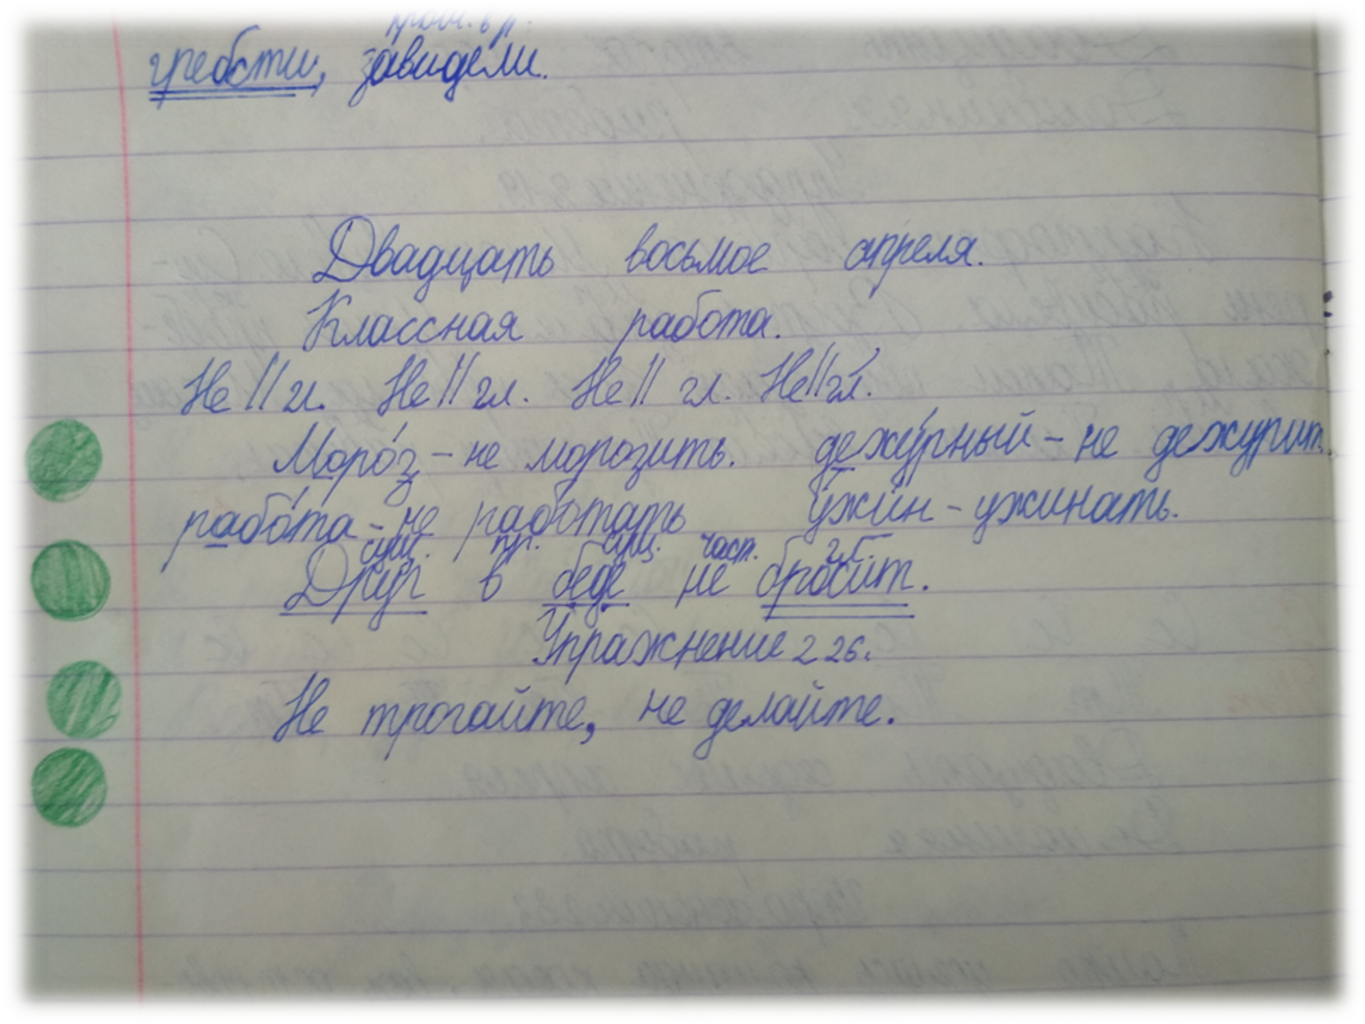 прош. вр.
гребсти, завидели.
Двадцать восьмое апреля.
Классная работа.
Не // гл. Не // гл. Не // гл. Не // гл.
Моро́з – не морозить. дежу́рный – не дежурит.
рабо́та – не работать у́жин – ужинать.
сущ. пр. сущ. част. гл.
Друг в беде не бросит.
Упражнение 226.
Не трогайте, не делайте.